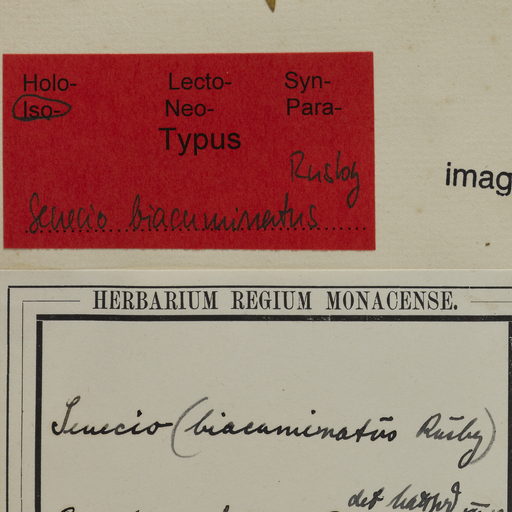 Holo- Lecto- Syn-
Iso- Neo- Para-
Typus
Rusby
Senecio biacuminatus
imag
HERBARIUM REGIUM MONACENSE.
Senecio (biacuminatus Rusby)
det